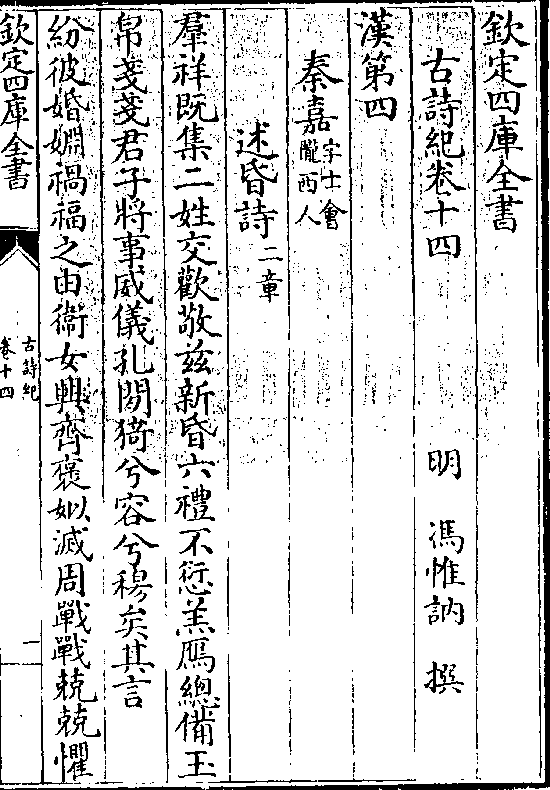 欽定四庫全書
古詩紀卷十四　明　馮惟訥　撰
漢第四
秦嘉字士會隴西人
述昏詩二章
羣祥既集二姓交歡敬兹新昏六禮不愆羔鴈總備玉
帛戔戔君子將事威儀孔閑猗兮容兮穆矣其言
紛彼婚婣禍福之由衞女興齊褒姒滅周戰戰兢兢懼
欽定四庫全書
古詩紀
卷十四
一